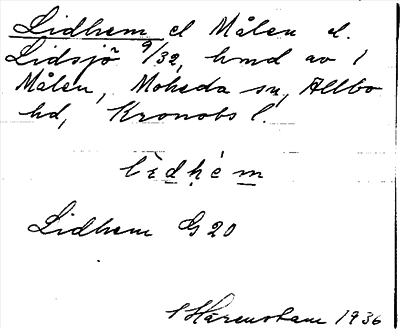 Lidhem el Målen el.
Lidsjö 9/32, hmd av 1
Målen, Moheda sn, Allbo
hd, Kronobs l.
Lidhem G 20
1936